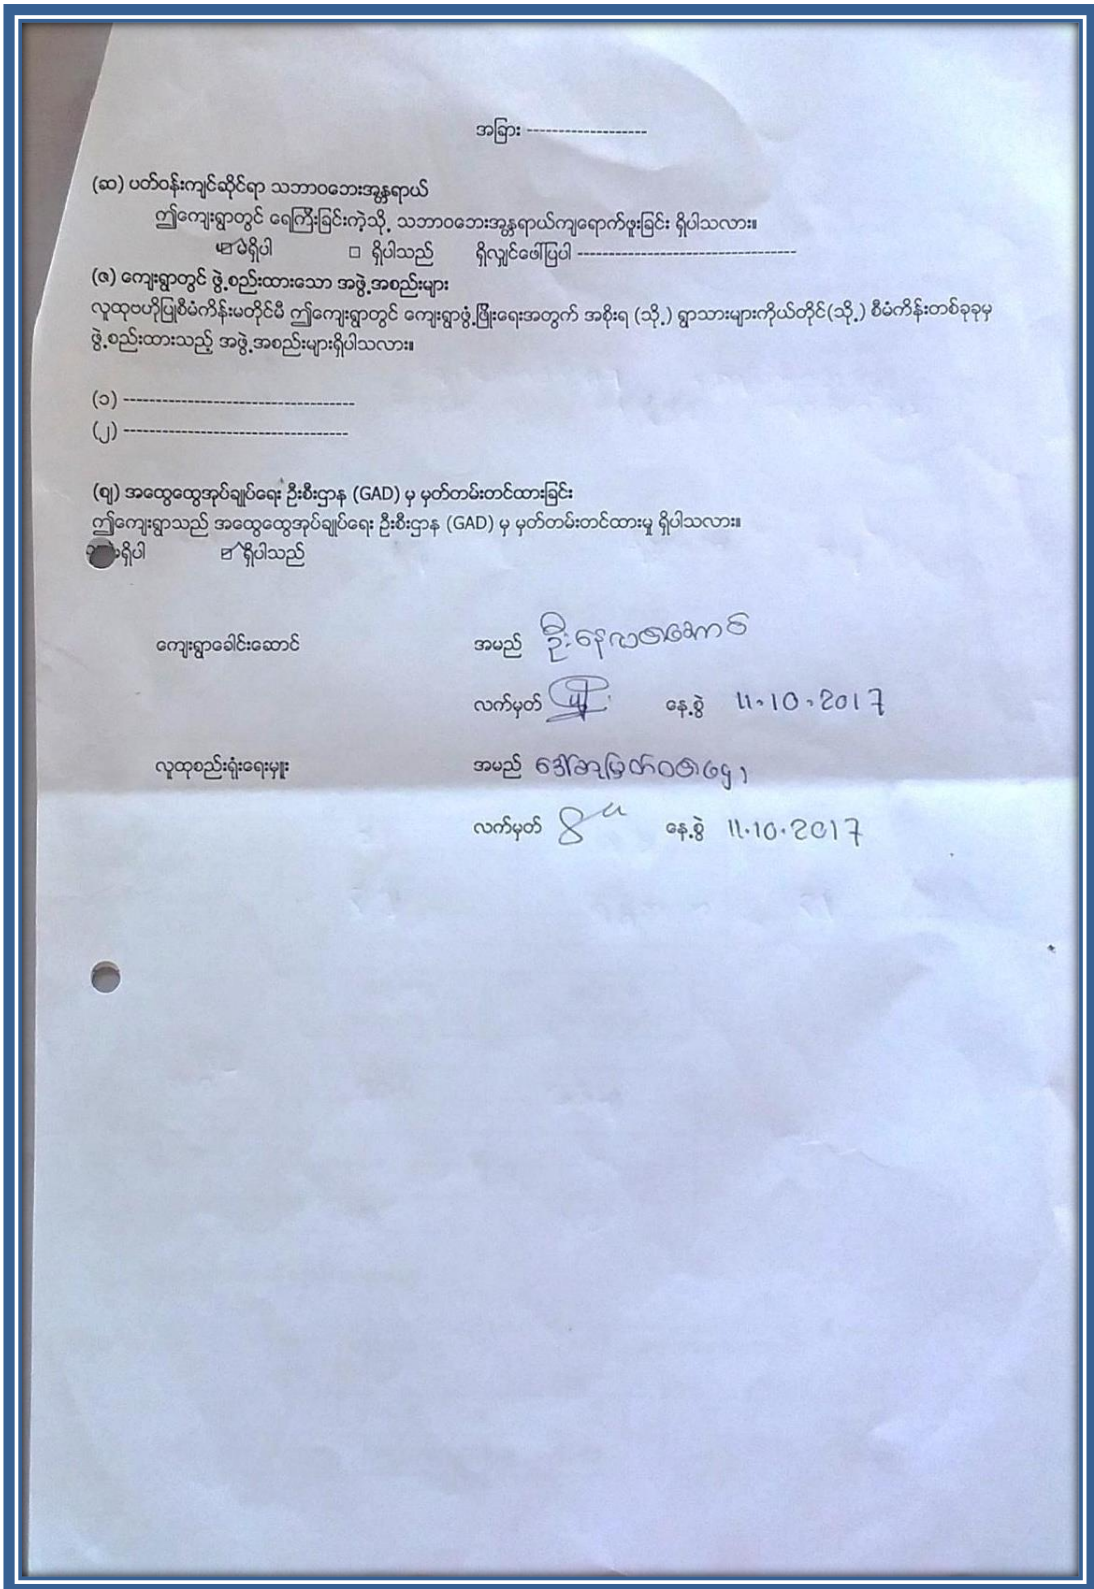 အခြား -------------------
(ဆ) ပတ်ဝန်းကျင်ဆိုင်ရာ သဘာဝဘေးအန္တရာယ်
ဤကျေးရွာတွင် ရေကြီးခြင်းကဲ့သို့ သဘာဝဘေးအန္တရာယ်ကျရောက်ဖူးခြင်း ရှိပါသလား။
☑ မရှိပါ □ ရှိပါသည် ရှိလျှင်ဖော်ပြပါ ----------------------------------
(ဇ) ကျေးရွာတွင် ဖွဲ့စည်းထားသော အဖွဲ့အစည်းများ
လူထုဗဟိုပြုစီမံကိန်းမတိုင်မီ ဤကျေးရွာတွင် ကျေးရွာဖွံ့ဖြိုးရေးအတွက် အစိုးရ (သို့) ရွာသားများကိုယ်တိုင်(သို့) စီမံကိန်းတစ်ခုခုမှ
ဖွဲ့စည်းထားသည့် အဖွဲ့အစည်းများရှိပါသလား။
(၁) ------------------------------------
(၂) -----------------------------------
(ဈ) အထွေထွေအုပ်ချုပ်ရေး ဦးစီးဌာန (GAD) မှ မှတ်တမ်းတင်ထားခြင်း
ဤကျေးရွာသည် အထွေထွေအုပ်ချုပ်ရေး ဦးစီးဌာန (GAD) မှ မှတ်တမ်းတင်ထားမှု ရှိပါသလား။
ရှိပါ ☑ ရှိပါသည်
ကျေးရွာခေါင်းဆောင် အမည်
လက်မှတ် နေ့စွဲ 11.10.2017
လူထုစည်းရုံးရေးမှူး အမည်
လက်မှတ် နေ့စွဲ 11.10.2017